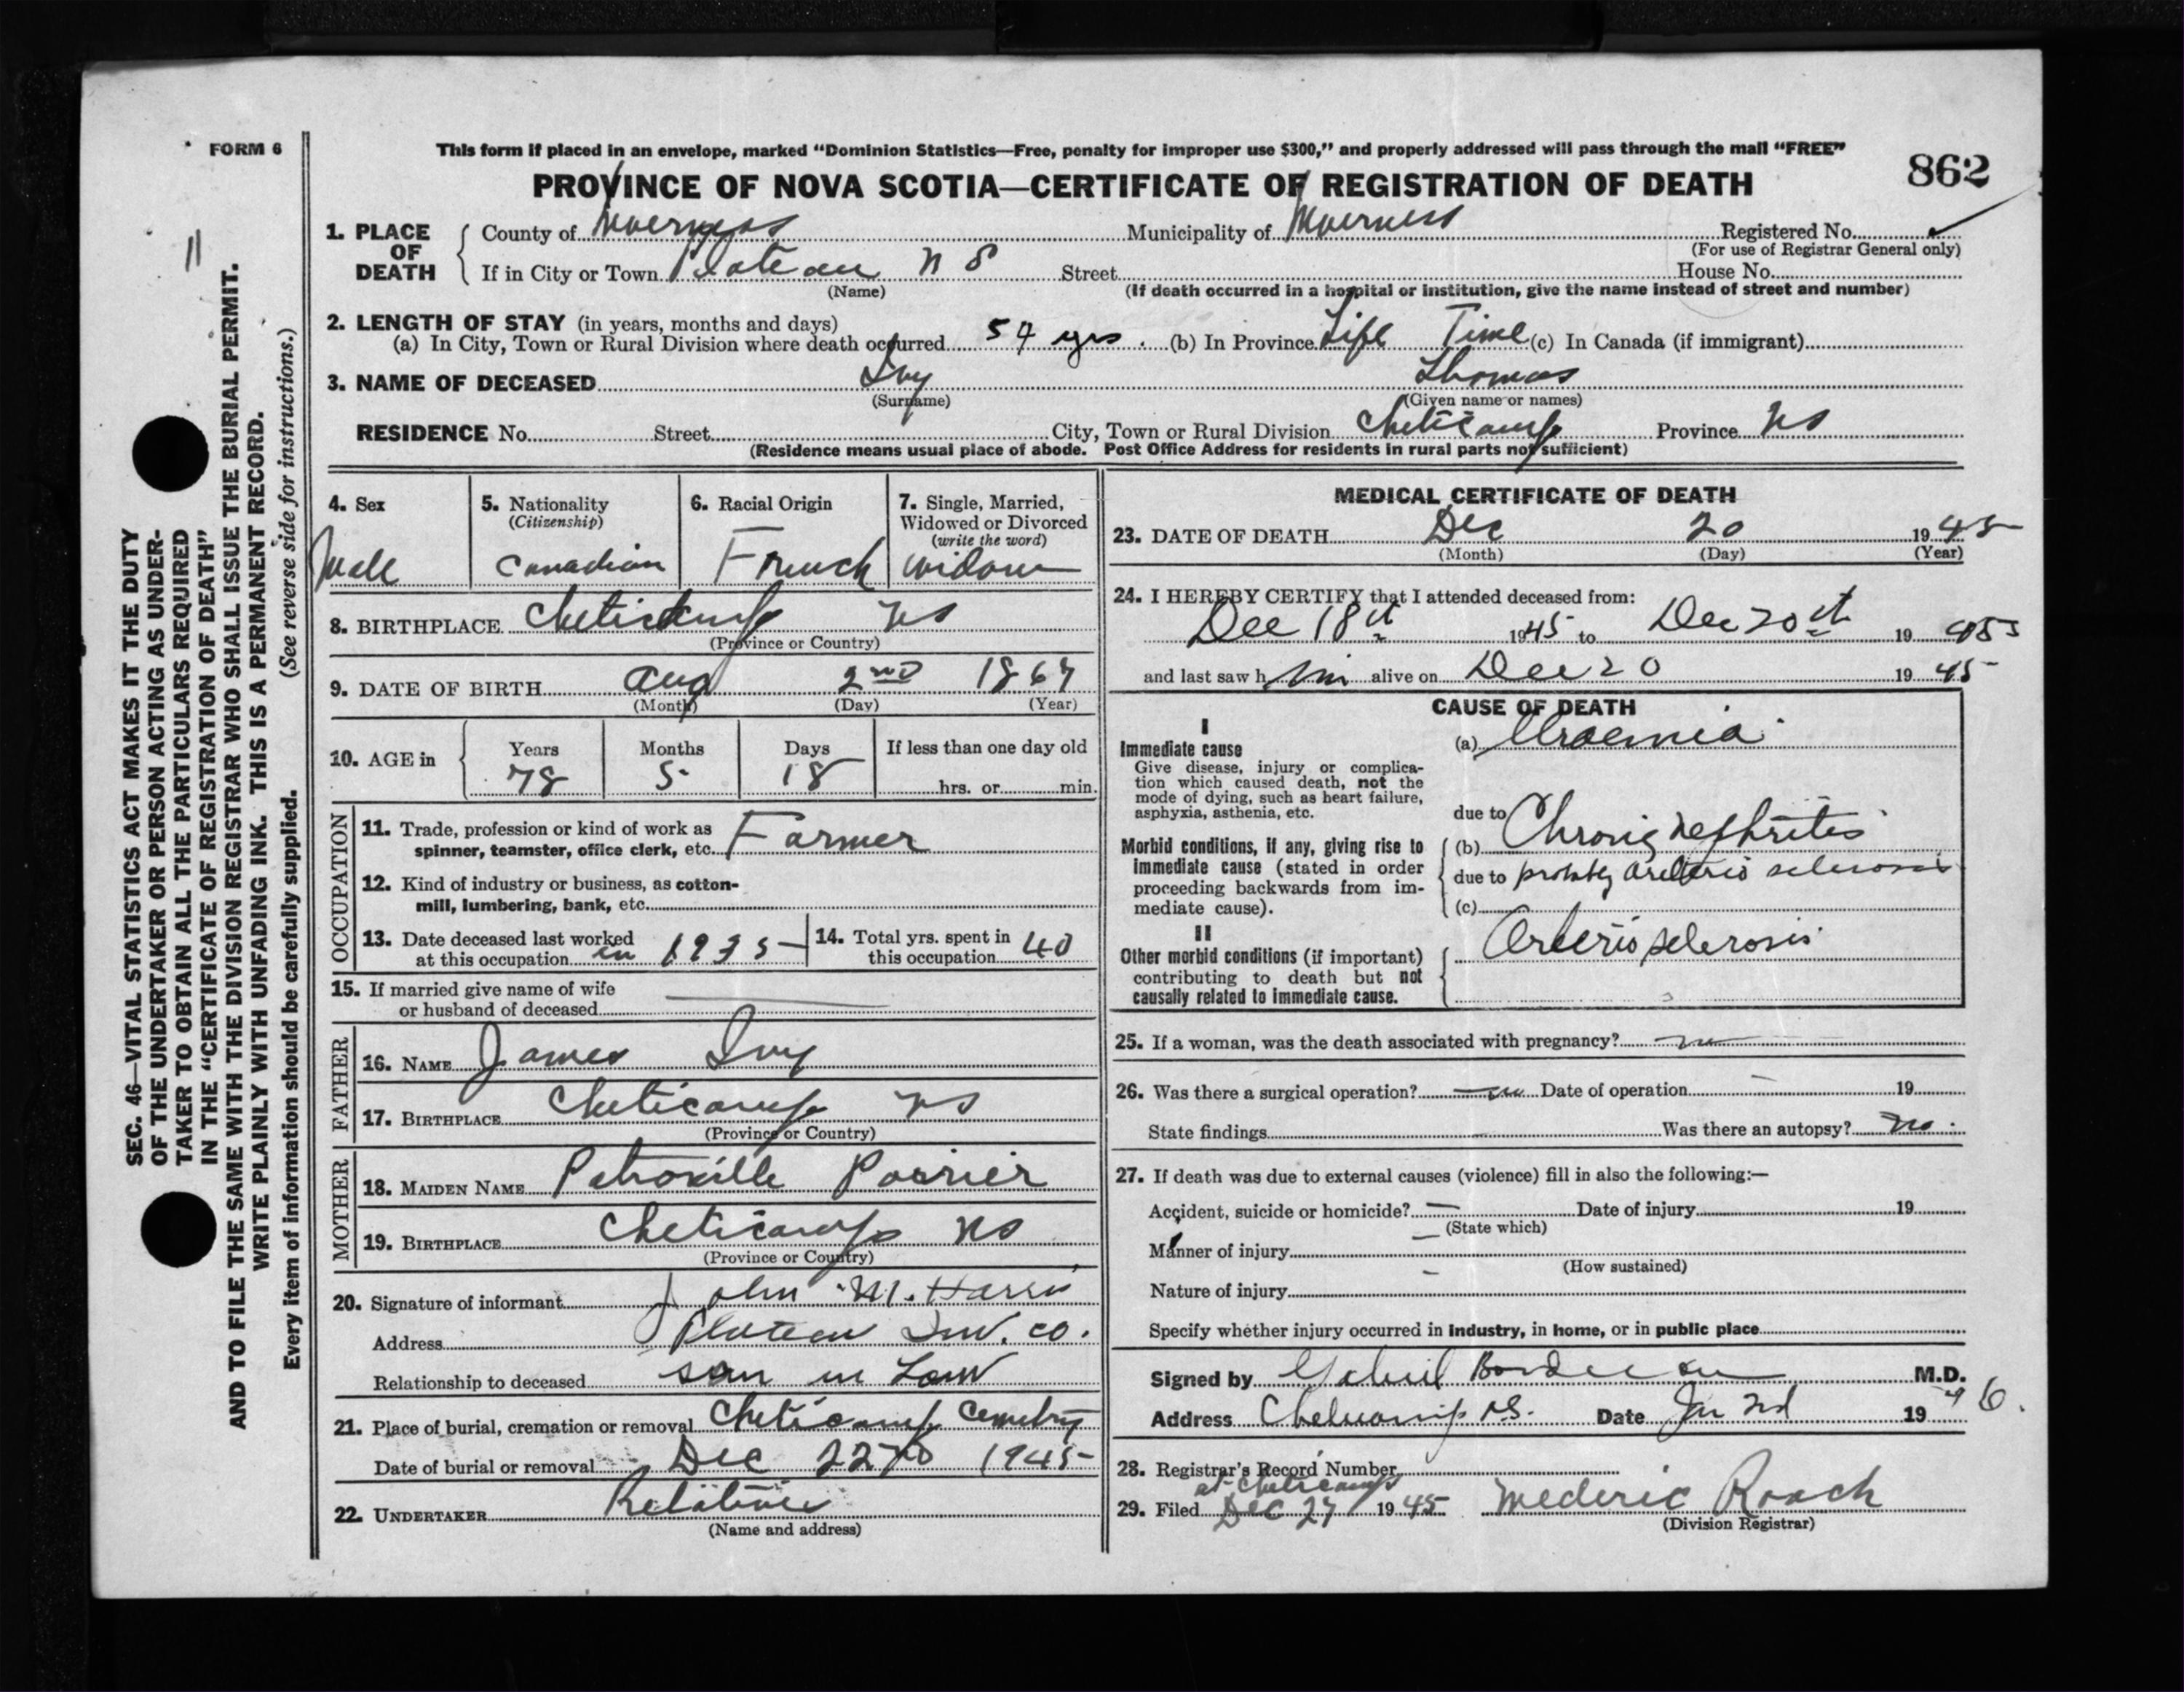 FORM 6
This form if placed in an envelope, marked “Dominion Statistics—Free, penalty for improper use $300,” and properly addressed will pass through the mail “FREE”
862
PROVINCE OF NOVA SCOTIA—CERTIFICATE OF REGISTRATION OF DEATH
11
SEC. 46—VITAL STATISTICS ACT MAKES IT THE DUTY
OF THE UNDERTAKER OR PERSON ACTING AS UNDER-
TAKER TO OBTAIN ALL THE PARTICULARS REQUIRED
IN THE “CERTIFICATE OF REGISTRATION OF DEATH”
AND TO FILE THE SAME WITH THE DIVISION REGISTRAR WHO SHALL ISSUE THE BURIAL PERMIT.
WRITE PLAINLY WITH UNFADING INK. THIS IS A PERMANENT RECORD.
Every item of information should be carefully supplied. (See reverse side for instructions.)
1. PLACE OF DEATH
County of Inverness Municipality of Inverness Registered No.
(For use of Registrar General only)
If in City or Town Plateau N S Street House No.
(Name) (If death occurred in a hospital or institution, give the name instead of street and number)
2. LENGTH OF STAY (in years, months and days)
(a) In City, Town or Rural Division where death occurred 54 yrs. (b) In Province Life Time (c) In Canada (if immigrant)
3. NAME OF DECEASED Ivy Thomas
(Surname) (Given name or names)
RESIDENCE No. Street City, Town or Rural Division Cheticamp Province NS
(Residence means usual place of abode. Post Office Address for residents in rural parts not sufficient)
4. Sex
Male
5. Nationality
(Citizenship)
Canadian
6. Racial Origin
French
7. Single, Married,
Widowed or Divorced
(write the word)
widow
8. BIRTHPLACE Cheticamp NS
(Province or Country)
9. DATE OF BIRTH Aug 2nd 1867
(Month) (Day) (Year)
10. AGE in Years Months Days If less than one day old
78 5 18 hrs. or min.
OCCUPATION
11. Trade, profession or kind of work as
spinner, teamster, office clerk, etc. Farmer
12. Kind of industry or business, as cotton-
mill, lumbering, bank, etc.
13. Date deceased last worked
at this occupation in 1935
14. Total yrs. spent in
this occupation 40
15. If married give name of wife
or husband of deceased
FATHER
16. NAME James Ivy
17. BIRTHPLACE Cheticamp NS
(Province or Country)
MOTHER
18. MAIDEN NAME Petronille Poirier
19. BIRTHPLACE Cheticamp NS
(Province or Country)
20. Signature of informant John M. Harris
Address Plateau Inv. Co.
Relationship to deceased son in Law
21. Place of burial, cremation or removal Cheticamp Cemetry
Date of burial or removal Dec 22nd 1945
22. UNDERTAKER Relative
(Name and address)
MEDICAL CERTIFICATE OF DEATH
23. DATE OF DEATH Dec 20 1945
(Month) (Day) (Year)
24. I HEREBY CERTIFY that I attended deceased from:
Dec 18th 1945 to Dec 20th 19 45
and last saw him alive on Dec 20 19 45
CAUSE OF DEATH
I
Immediate cause
Give disease, injury or complica-
tion which caused death, not the
mode of dying, such as heart failure,
asphyxia, asthenia, etc.
(a) Uraemia
due to
Morbid conditions, if any, giving rise to
immediate cause (stated in order
proceeding backwards from im-
mediate cause).
(b) Chronic nephritis
due to probably arterio sclerosis
(c)
II
Other morbid conditions (if important)
contributing to death but not
causally related to immediate cause.
Arterio sclerosis
25. If a woman, was the death associated with pregnancy?
26. Was there a surgical operation? no Date of operation 19
State findings Was there an autopsy? No.
27. If death was due to external causes (violence) fill in also the following:—
Accident, suicide or homicide? Date of injury 19
(State which)
Manner of injury
(How sustained)
Nature of injury
Specify whether injury occurred in industry, in home, or in public place
Signed by Gabriel Boudreau M.D.
Address Cheticamp N.S. Date Jan 3rd 1946.
28. Registrar's Record Number
at Cheticamp
29. Filed Dec 27 1945 Mederic Roach
(Division Registrar)